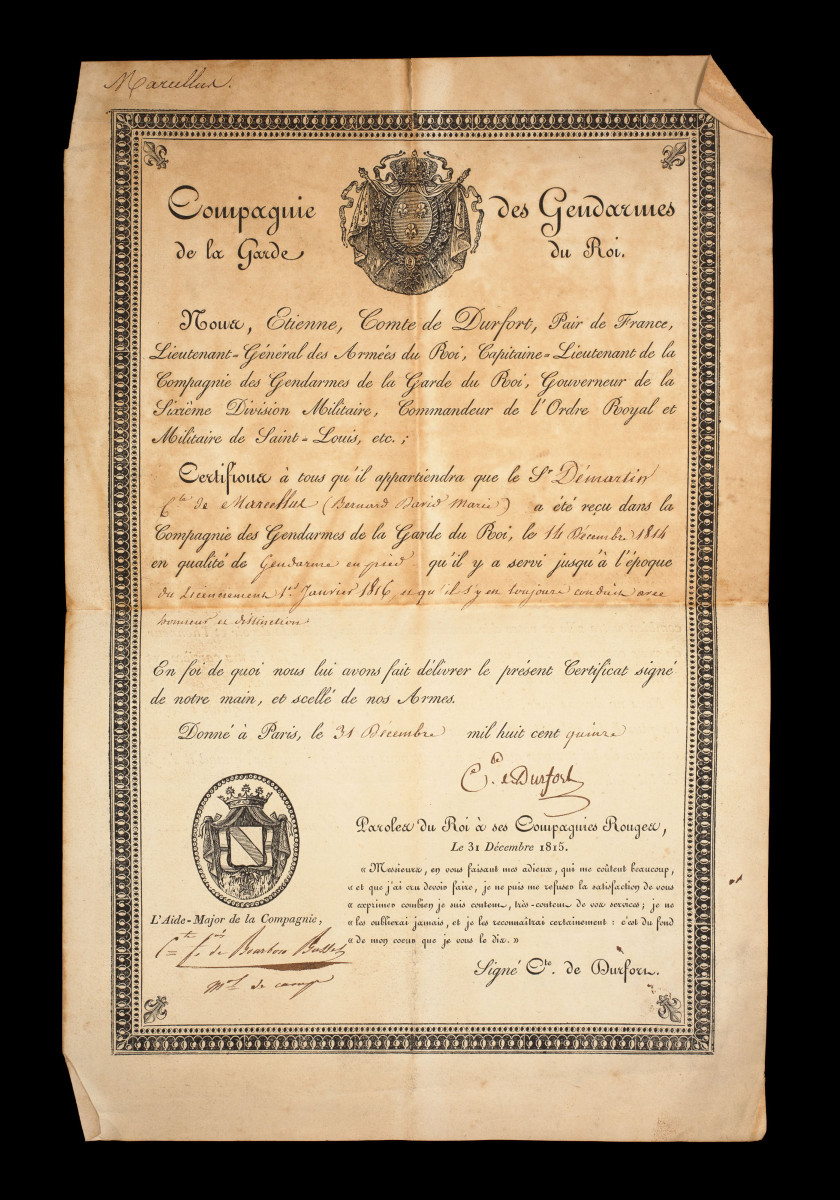 Marcellus.
Compagnie des Gendarmes
de la Garde du Roi.
Nous, Etienne, Comte de Durfort, Pair de France,
Lieutenant-Général des Armées du Roi, Capitaine-Lieutenant de la
Compagnie des Gendarmes de la Garde du Roi, Gouverneur de la
Sixième Division Militaire, Commandeur de l'Ordre Royal et
Militaire de Saint-Louis, etc.;
Certifions à tous qu'il appartiendra que le Sr Démartin
Cte de Marcellus (Bernard David Marie) a été reçu dans la
Compagnie des Gendarmes de la Garde du Roi, le 14 Décembre 1814
en qualité de Gendarme en pied qu'il y a servi jusqu'à l'époque
du Licenciement 1er Janvier 1816, et qu'il s'y est toujours conduit avec
honneur et distinction.
En foi de quoi nous lui avons fait délivrer le présent Certificat signé
de notre main, et scellé de nos Armes.
Donné à Paris, le 31 Décembre mil huit cent quinze
Cte de Durfort
Paroles du Roi à ses Compagnies Rouges,
Le 31 Décembre 1815.
« Messieurs, en vous faisant mes adieux, qui me coûtent beaucoup,
« et que j'ai cru devoir faire, je ne puis me refuser la satisfaction de vous
« exprimer combien je suis content, très-content de vos services; je ne
« les oublierai jamais, et je les reconnaîtrai certainement : c'est du fond
« de mon coeur que je vous le dis. »
Signé Cte. de Durfort.
L'Aide-Major de la Compagnie,
Cte de Bourbon Busset
Mal de camp